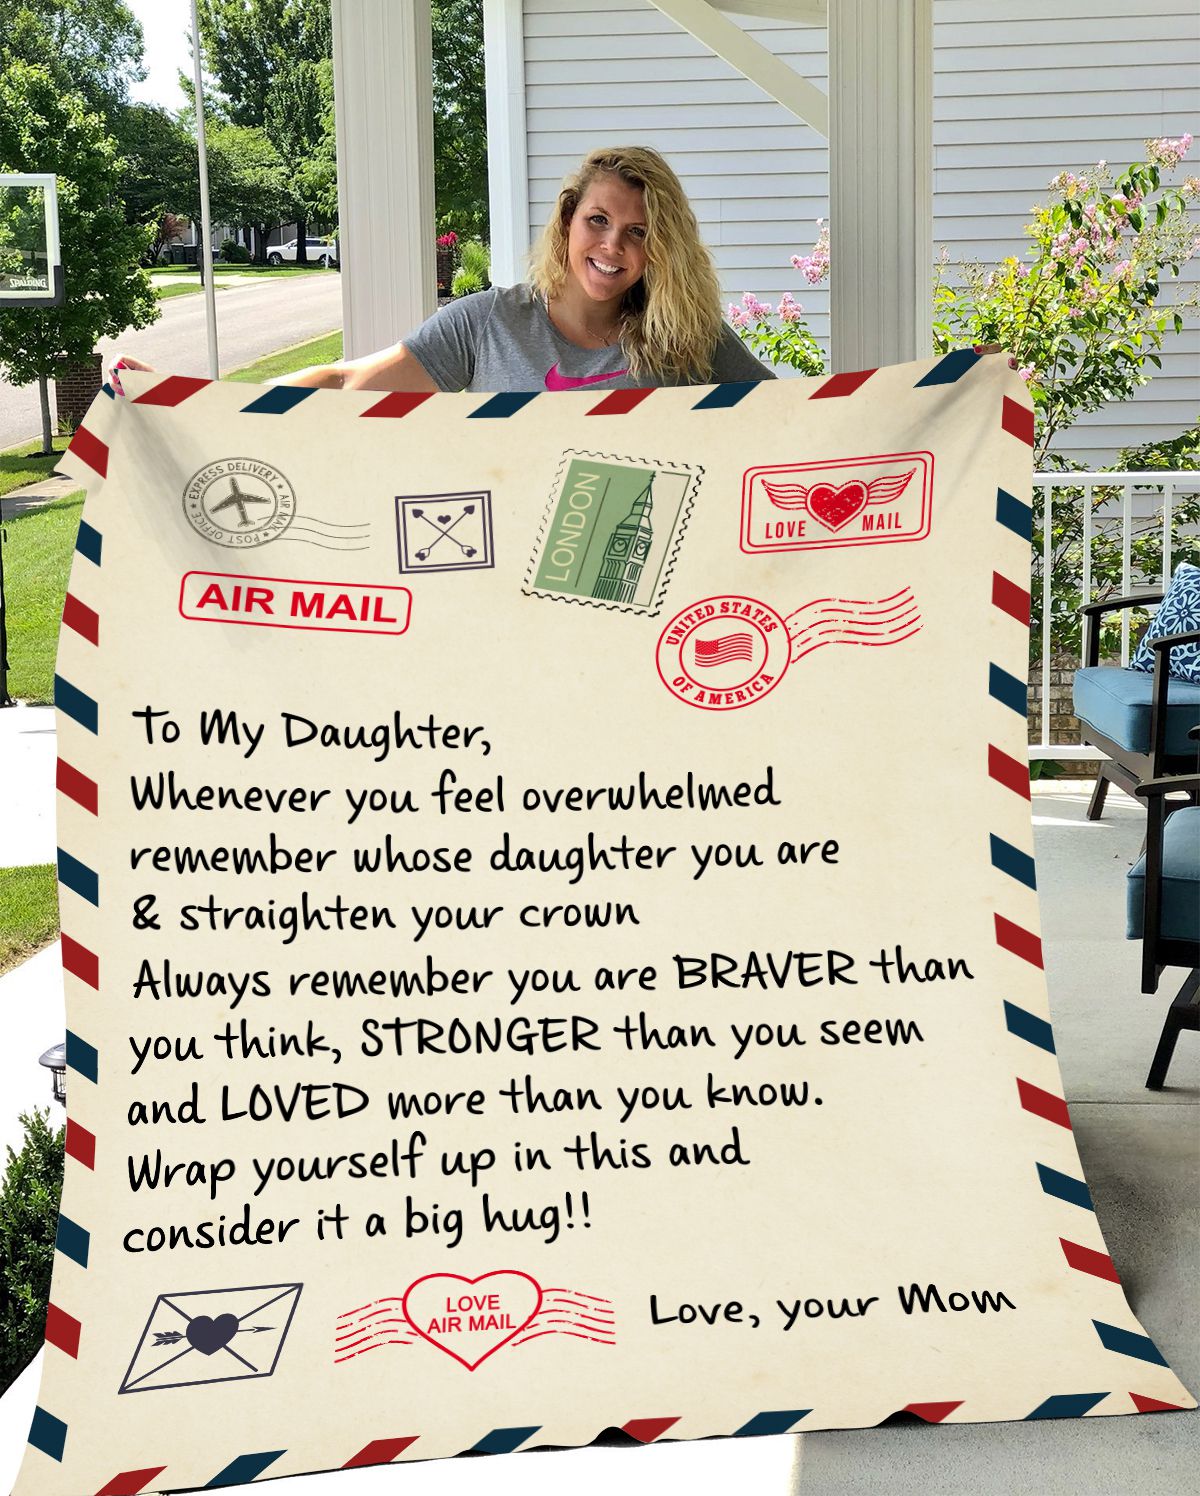 SPALDING
EXPRESS DELIVERY
AIR MAIL
POST OFFICE
AIR MAIL
LONDON
LOVE MAIL
UNITED STATES
OF AMERICA
To My Daughter,
Whenever you feel overwhelmed
remember whose daughter you are
& straighten your crown
Always remember you are BRAVER than
you think, STRONGER than you seem
and LOVED more than you know.
Wrap yourself up in this and
consider it a big hug!!
LOVE
AIR MAIL
Love, your Mom